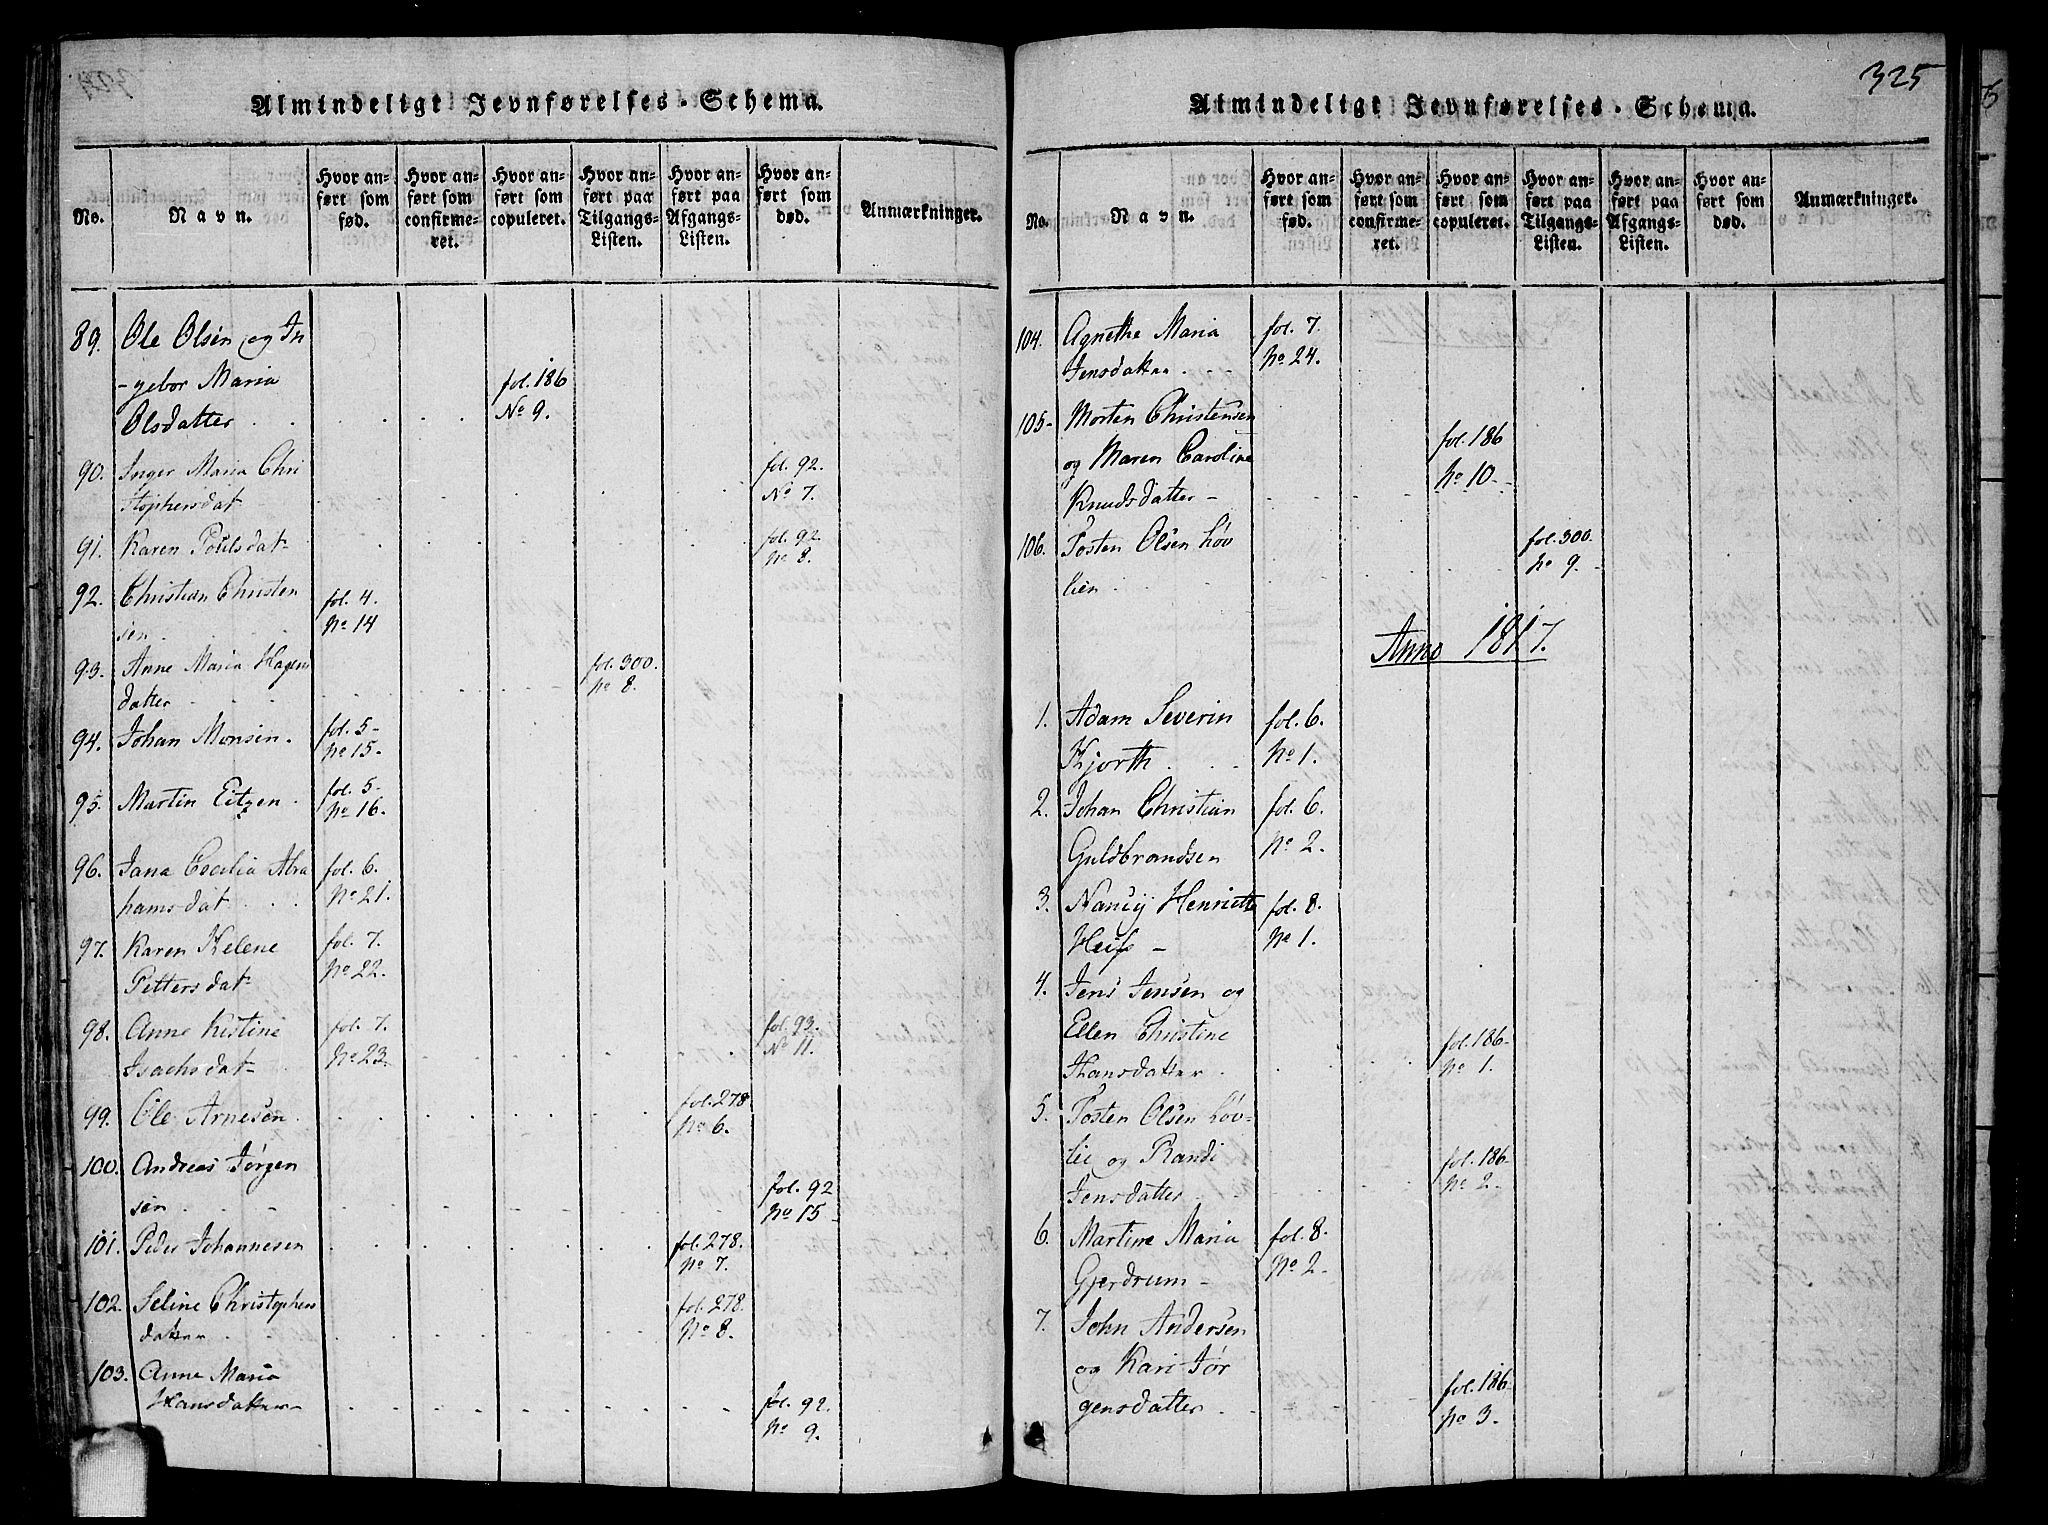 Almindeligt Jevnførelses-Schema.
No.
Navn.
Hvor an-
ført som
fød.
Hvor an-
ført som
confirme-
ret.
Hvor an-
ført som
copuleret.
Hvor an-
ført paa
Tilgangs-
Listen.
Hvor an-
ført paa
Afgangs-
Listen.
Hvor an-
ført som
død.
Anmærkninger.
89. Ole Olsen og In
-gebor Maria fol. 186
Olsdatter No 9.
90. Inger Maria Chri fol. 92.
stophersdat No 7.
91. Karen Poulsdat- fol. 92
No 8.
92. Christian Christen fol. 4.
sen. No 14
93. Anne Maria Hagens fol. 300.
datter No 8.
94. Johan Monsen. fol. 5-
No 15-
95. Martin Eitzen. fol. 5-
No 16.
96. Jana Cecilia Abra fol. 6.
hamsdat No 21.
97. Karen Helene fol. 7.
Pettersdat No 22.
98. Anne Kistine fol. 7. fol. 93.
Isachsdat- No 23. No 11.
99. Ole Arnesen fol. 278
No 6.
100. Andreas Jørgen fol. 92
sen No 15-
101. Peder Johannesen fol. 278.
No 7.
102. Seline Christophers fol. 278.
datter No 8.
103. Anne Maria
Hansdatter- fol. 92.
No 9.
325
Almindeligt Jevnførelses-Schema.
No.
Navn.
Hvor an-
ført som
fød.
Hvor an-
ført som
confirme-
ret.
Hvor an-
ført som
copuleret.
Hvor an-
ført paa
Tilgangs-
Listen.
Hvor an-
ført paa
Afgangs-
Listen.
Hvor an-
ført som
død.
Anmærkninger.
104. Agnethe Maria fol. 7.
Jensdatter No 24.
105- Morten Christensen
og Maren Caroline fol. 186
Knudsdatter- No 10-
106. Tosten Olsen Løv fol. 300.
lien No 9.
Anno 1817.
1. Adam Severin fol. 6.
Hjorth No 1.
2. Johan Christian fol. 6.
Guldbrandsen No 2.
3. Nancij Henriette fol. 8.
No 1.
4. Jens Jensen og
Ellen Christine fol. 186-
Hansdatter No 1.
5. Tosten Olsen Løv-
lie og Randi fol. 186-
Jensdatter No 2-
6. Martine Maria fol. 8.
Gjerdrum- No 2-
7. John Andersen
og Kari Jør fol. 186-
gensdatter No 3.